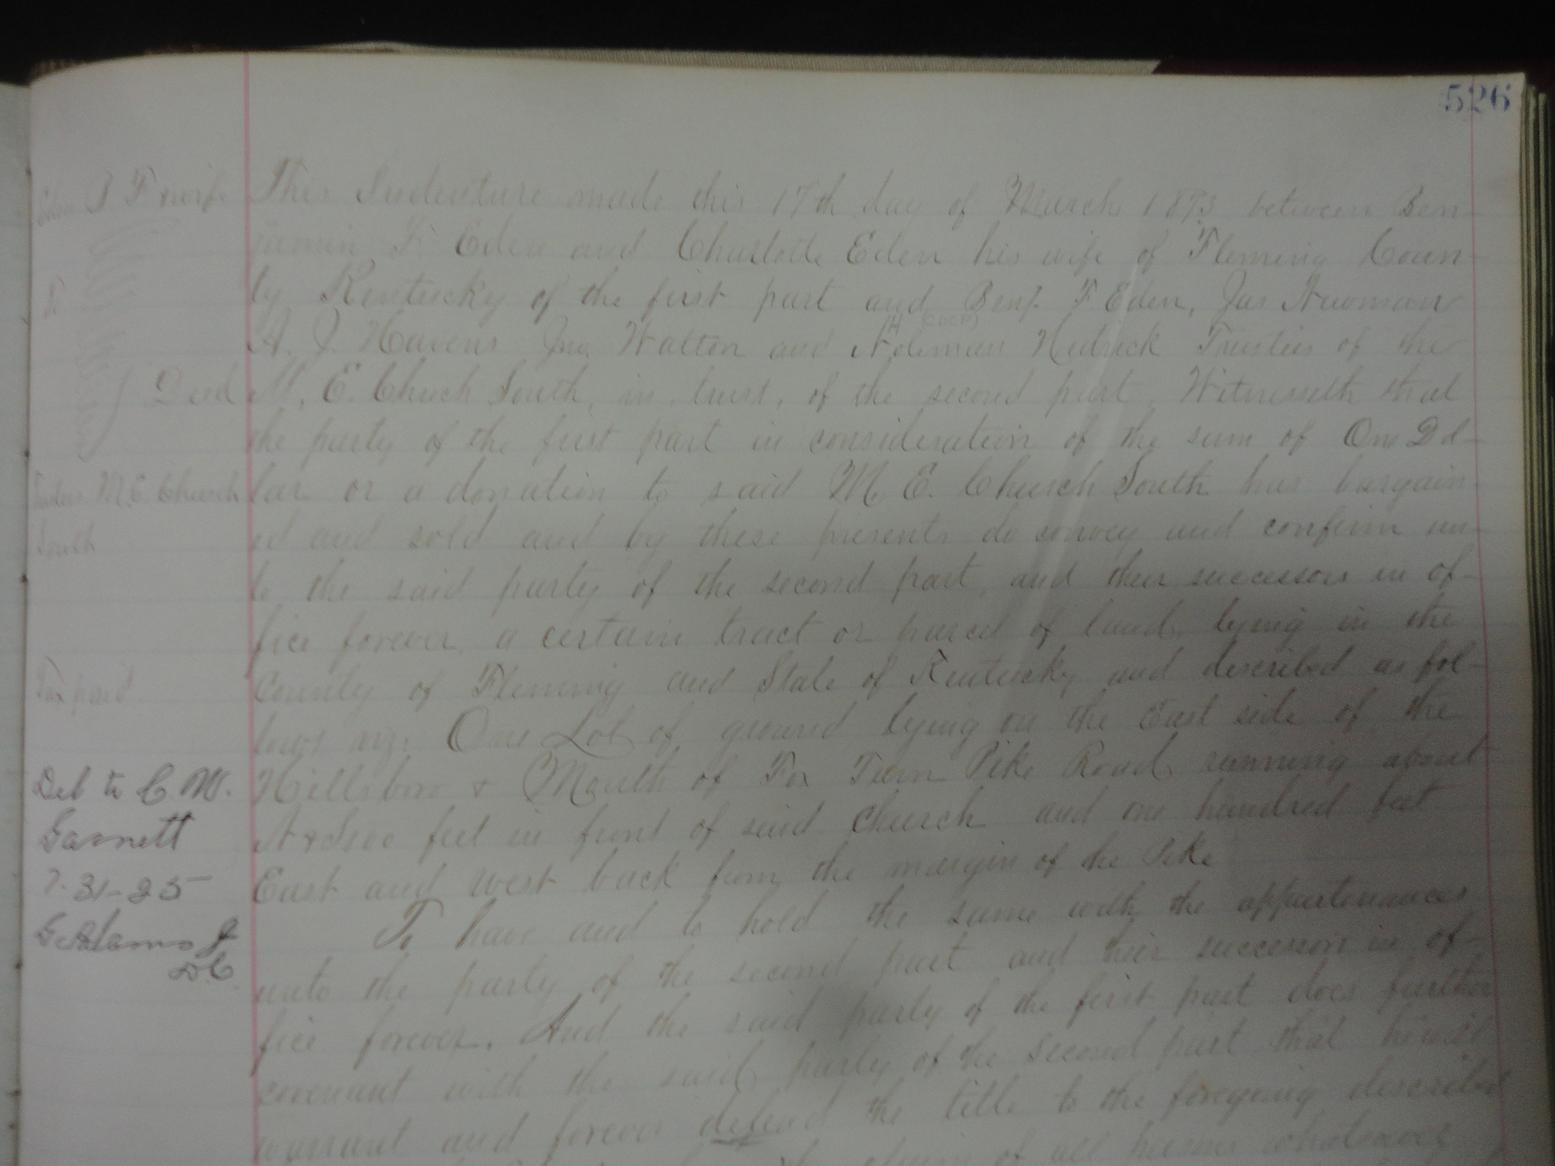 526
Eden B F & wife
This Indenture made this 17th day of March 1873 between Ben-
jamin F. Eden and Charlotte Eden his wife of Fleming Coun-
To
ty Kentucky of the first part and Benj. F. Eden, Jas Newman
A. J. Havens Jno. Walton and Hedrick Trustees of the
Deed
M. E. Church South, in trust, of the second part, Witnesseth that
the party of the first part in consideration of the sum of One Dol-
Trustees M.E. Church
South
lar or a donation to said M. E. Church South has bargain-
ed and sold and by these presents do convey and confirm un-
to the said party of the second part, and their successors in of-
fice forever a certain tract or parcel of land, lying in the
Tax paid
County of Fleming and State of Kentucky and described as fol-
lows viz. One Lot of ground lying on the East side of the
Del to C. W.
Garnett
7-31-25
D.C.
Hillsboro & Mouth of Fox Turn Pike Road running about
feet in front of said Church and one hundred feet
East and West back from the margin of the Pike
To have and to hold the same with the appurtenances
unto the party of the second part and their successors in of-
fice forever. And the said party of the first part does further
covenant with the said party of the second part that he will
warrant and forever defend the title to the foregoing described
claim of all persons whatsoever